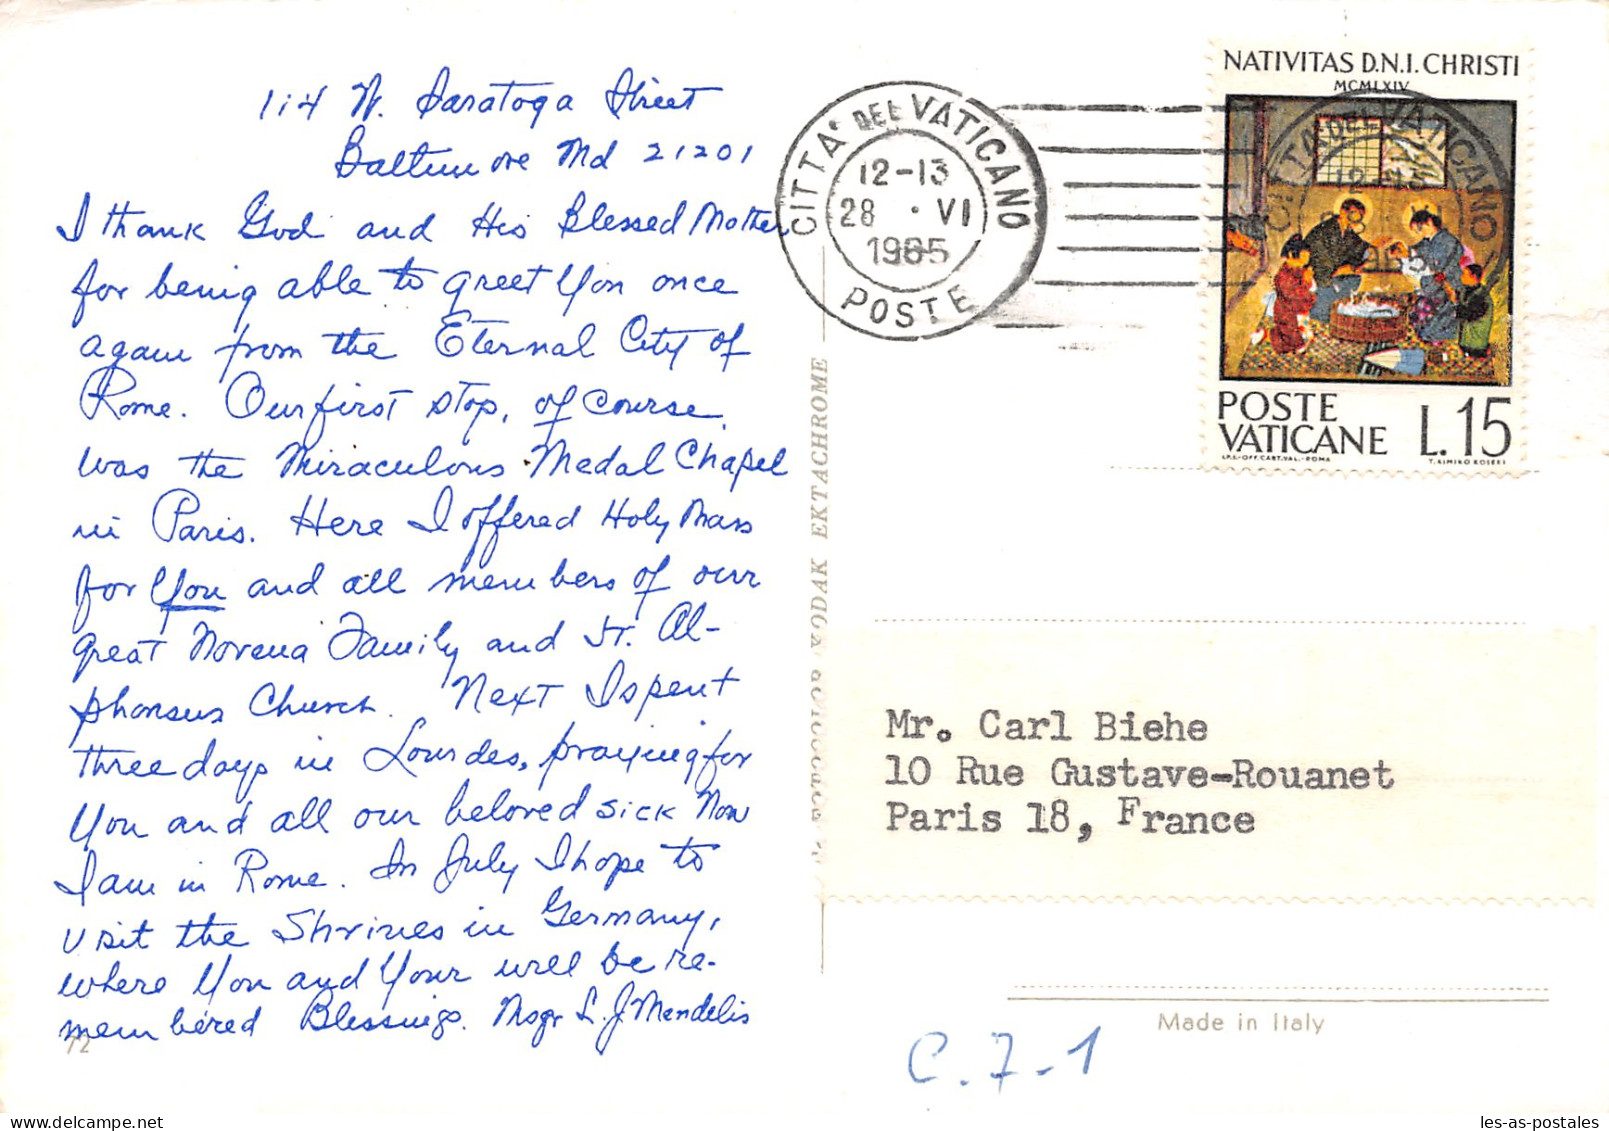 114 W. Saratoga Street
Baltimore Md 21201
I thank God and His Blessed Mother
for being able to greet You once
again from the Eternal City of
Rome. Our first stop, of course,
was the Miraculous Medal Chapel
in Paris. Here I offered Holy Mass
for You and all members of our
great Novena Family and St. Al-
phonsus Church. Next I spent
three days in Lourdes, praying for
You and all our beloved sick Now
I am in Rome. In July I hope to
visit the Shrines in Germany,
where You and Your will be re-
membered Blessings. Msgr L. J Mendelis
72
EKTACHROME
KODAK
CITTA' DEL VATICANO
12-13
28 · VI
1965
POSTE
NATIVITAS D.N.I. CHRISTI
MCMLXIV
POSTE
VATICANE L.15
I.P.S.-OFF.CART.VAL.-ROMA
Mr. Carl Biehe
10 Rue Gustave-Rouanet
Paris 18, France
Made in Italy
C.7-1
les-as-postales